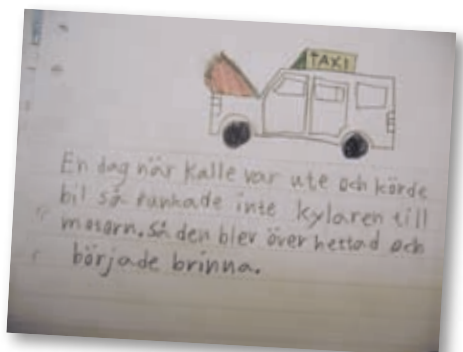 TAXI
En dag när Kalle var ute och körde
bil så funkade inte kylaren till
motorn. Så den blev över hettad och
började brinna.